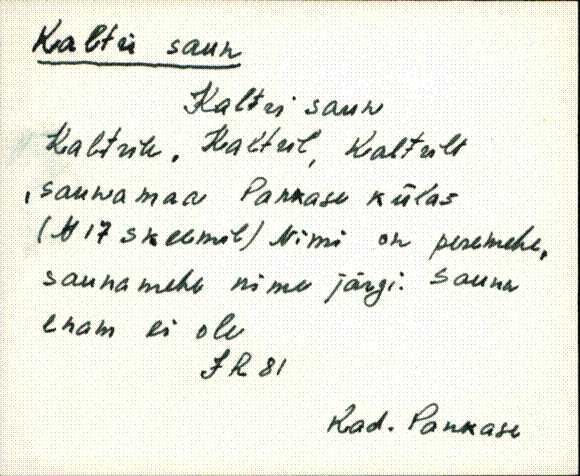 Kaltri saun
Kaltri saun
Kaltrile, Kaltril, Kaltrilt
, saunamaa Pankase külas
(№ 17 skeemil) Nimi on peremehe,
saunamehe nime järgi. Sauna
enam ei ole
JR 81
Kad. Pankase